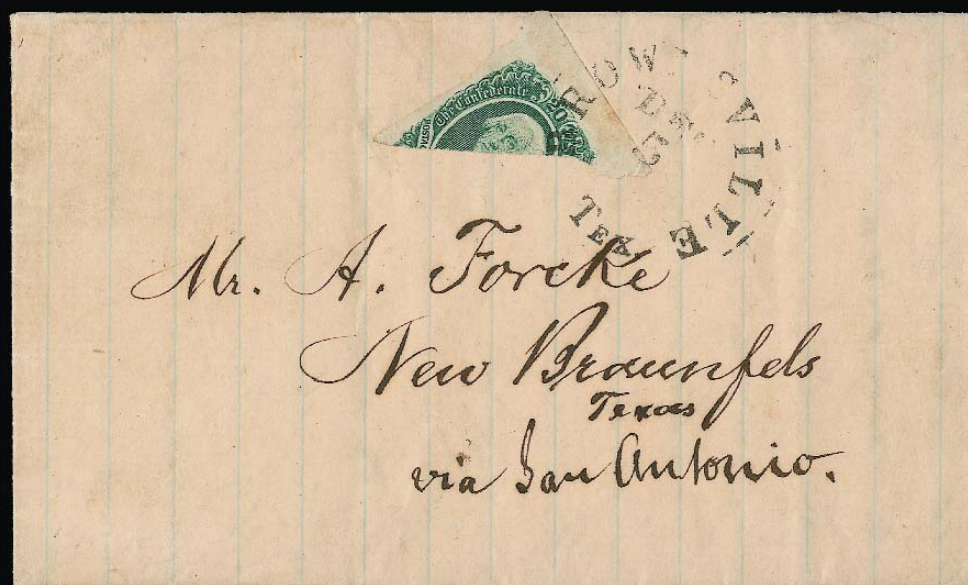 The Confederate
20
BROWNSVILLE
DE
5
TEX
Mr. A. Forcke
New Braunfels
Texas
via San Antonio.